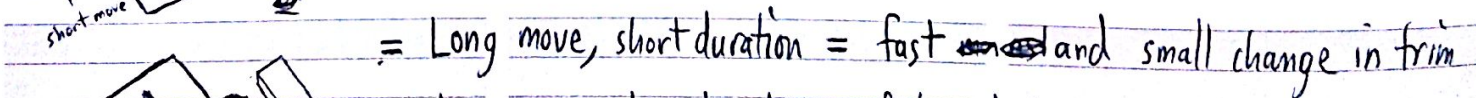 short move
= Long move, short duration = fast and small change in trim